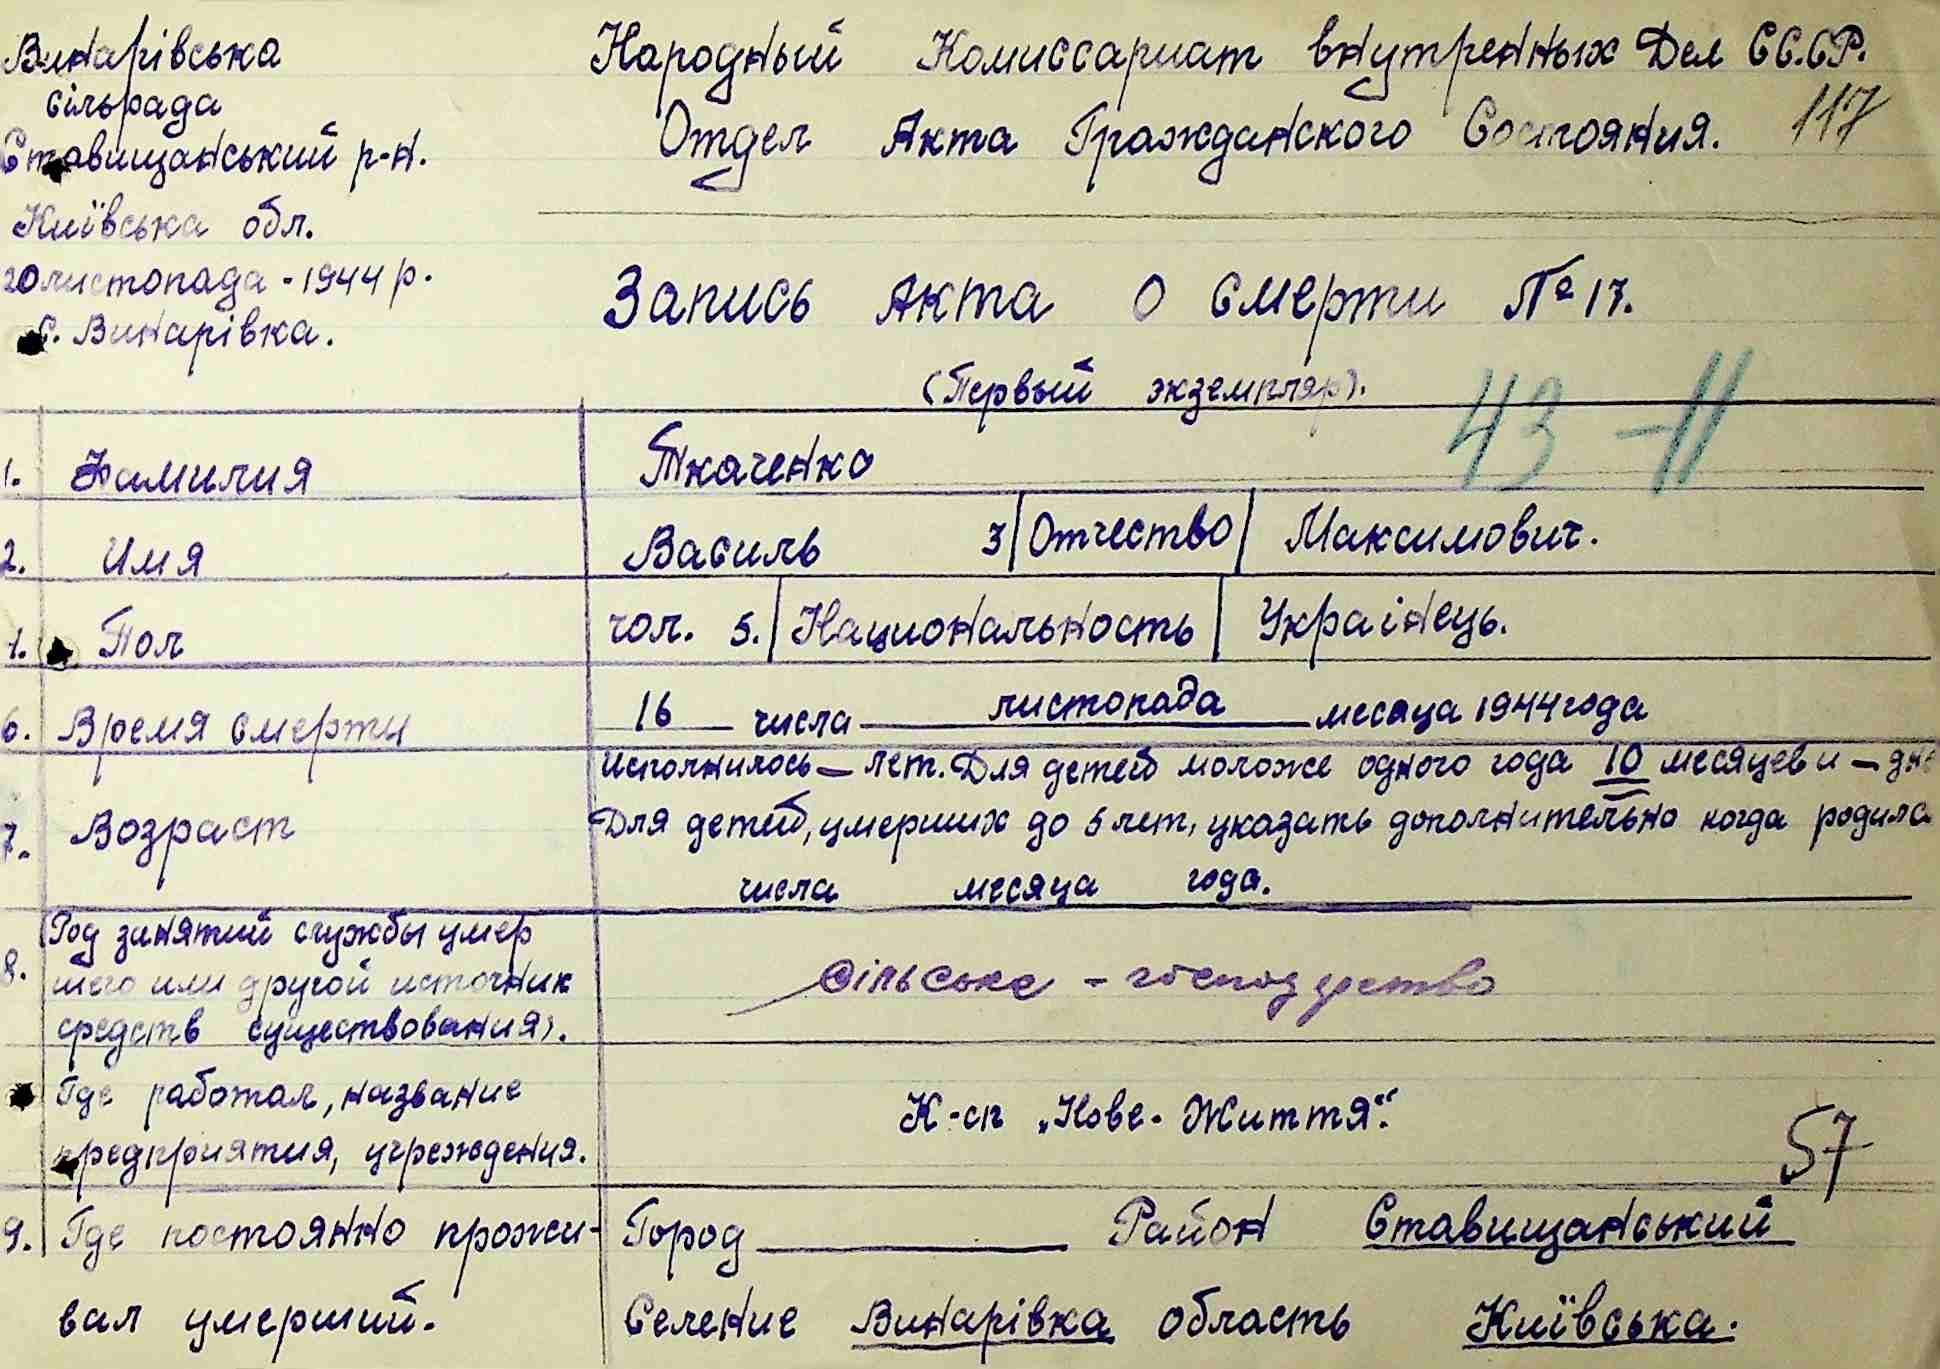 Винарівська
сільрада
Ставищанський р-н.
Київська обл.
20 листопада - 1944 р.
с. Винарівка.
Народный Комиссариат внутренных Дел СС.СР.
Отдел Акта Гражданского Состояния. 117
Запись Акта о смерти № 17.
(Первый экземпляр).
43 - 11
1. Фамилия Ткаченко
2. Имя Василь 3 Отчество Максимович.
Пол чол. 5. Национальность Українець.
6. Время смерти 16 числа листопада месяца 1944 года
7. Возраст исполнилось — лет. Для детей моложе одного года 10 месяцев и — дне
Для детей, умерших до 5 лет, указать дополнительно когда родилс
числа месяца года.
8. Род занятий службы умер
шего или другой источник
средств существования).
сільське - господарство
Где работал, название
предприятия, учреждения.
К-сп „Нове - Життя".
57
9. Где постоянно прожи- Город Район Ставищанський
вал умерший. Селение Винарівка область Київська.